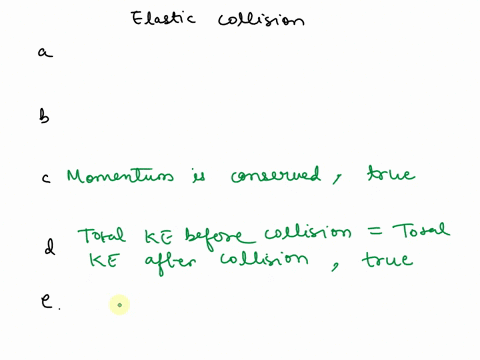 Elastic collision
a
b
c Momentum is conserved, true
d Total KE before collision = Total
KE after collision, true
e.